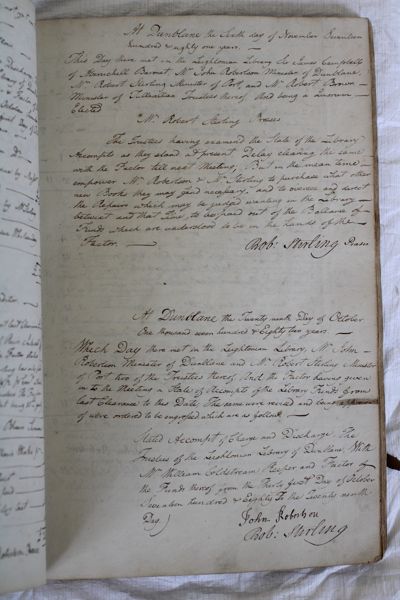 At Dunblane the Sixth day of November Seventeen
hundred & eighty one years. —
This Day there met in the Leightonian Library Sir James Campbell
of Aberuchill Baronet, Mr John Robertson Minister of Dunblane,
Mr Robert Stirling Minister of Port, and Mr Robert Brown
Minister of Kilmadock Trustees thereof that being a Quorum —
Elected
Mr Robert Stirling Preses
The Trustees having examined the State of the Library
Accompts as they stand at present Delay clearing the same
with the Factor till next Meeting, But in the mean time —
empower Mr Robertson & Mr Stirling to purchase what other
new Books they may judge necessary, and to oversee and direct
the Repairs which may be judged wanting in the Library —
betwixt and that time, to be paid out of the Ballance of
Funds which are understood to be in the hands of the
Factor. —
Rob: Stirling Preses
At Dunblane the Twenty ninth Day of October
One thousand seven hundred & Eighty two years —
Which Day there met in the Leightonian Library, Mr John —
Robertson Minister of Dunblane and Mr Robert Stirling Minister
of Port two of the Trustees thereof And the Factor having given
in to the Meeting a State of Accompts of the Library Funds from
last Clearance to this Date, The same were revised and
were ordered to be engrossed which are as follows —
Stated Accompt of Charge and Discharge The
Trustees of the Leightonian Library of Dunblane With
Mr William Coldstream Keeper and Factor of
the Funds thereof from the Thirty first Day of October
Seventeen hundred & Eighty To the Twenty ninth
Day
John Robertson
Rob: Stirling